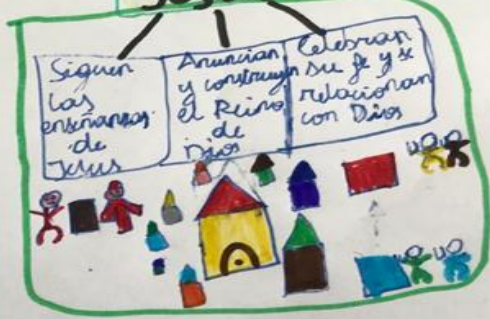 Siguen
las
enseñanzas
de
Jesus
Anuncian
y construyen
el Reino
de
Dios
Celebran
su fe y se
relacionan
con Dios